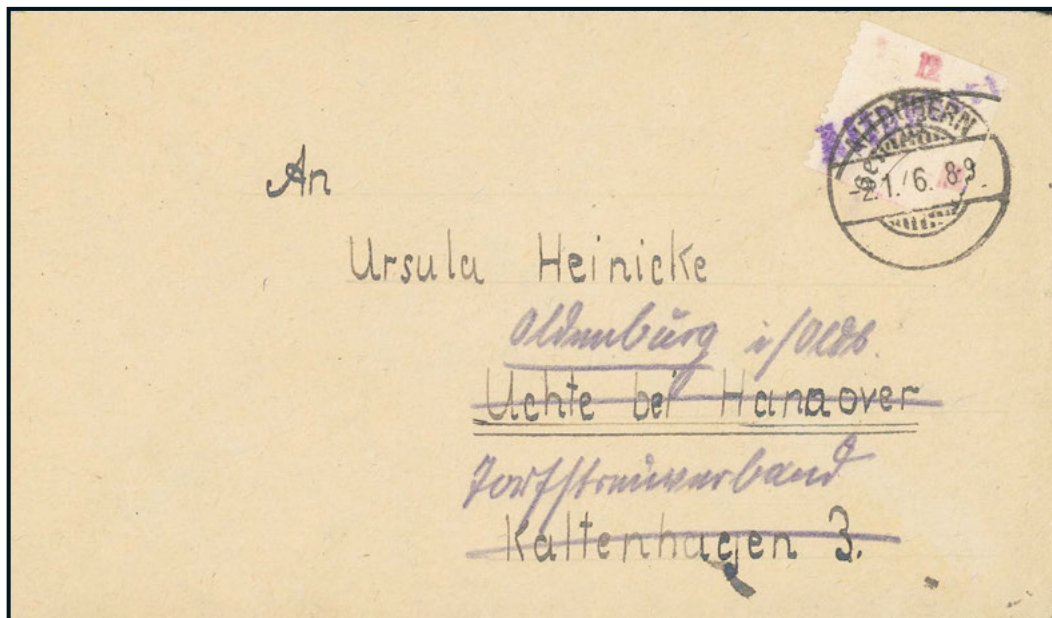 12
ALTDÖBERN
-2.1.46. 8-9
An
Ursula Heinicke
Oldenburg i/Oldb.
Uchte bei Hannover
Torfstreuverband
Kaltenhagen 3.